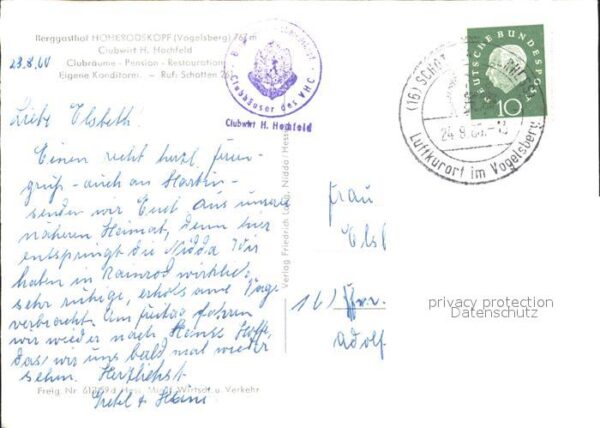 Berggasthof HOHERODSKOPF (Vogelsberg) 767 m
Clubwirt H. Hochfeld
Clubräume - Pension - Restauration
Eigene Konditorei. - Ruf: Schotten
23.8.60
Clubhäuser des VHC
Clubwirt H. Hochfeld
DEUTSCHE BUNDESPOST
10
(16) SCHOTTEN
24.8.60.-18
Luftkurort im Vogelsberg
Liebe Elsbeth!
Einen recht herzl. Ferien-
gruß - auch an Martin -
senden wir Euch aus unserer
näheren Heimat, denn hier
entspringt die Nidda. Wir
haben in Rainrod wirklich
sehr ruhige, erholsame Tage
verbracht. Am Freitag fahren
wir wieder nach Hause. Hoffe,
das wir uns bald mal wieder
sehen. Herzlichst
Gretel + Hans
Freig. Nr. Hess. Min. f. Wirtsch. u. Verkehr
Verlag Friedrich Lang, Nidda/Hess
Frau
Elsb
16)
Adolf
privacy protection
Datenschutz